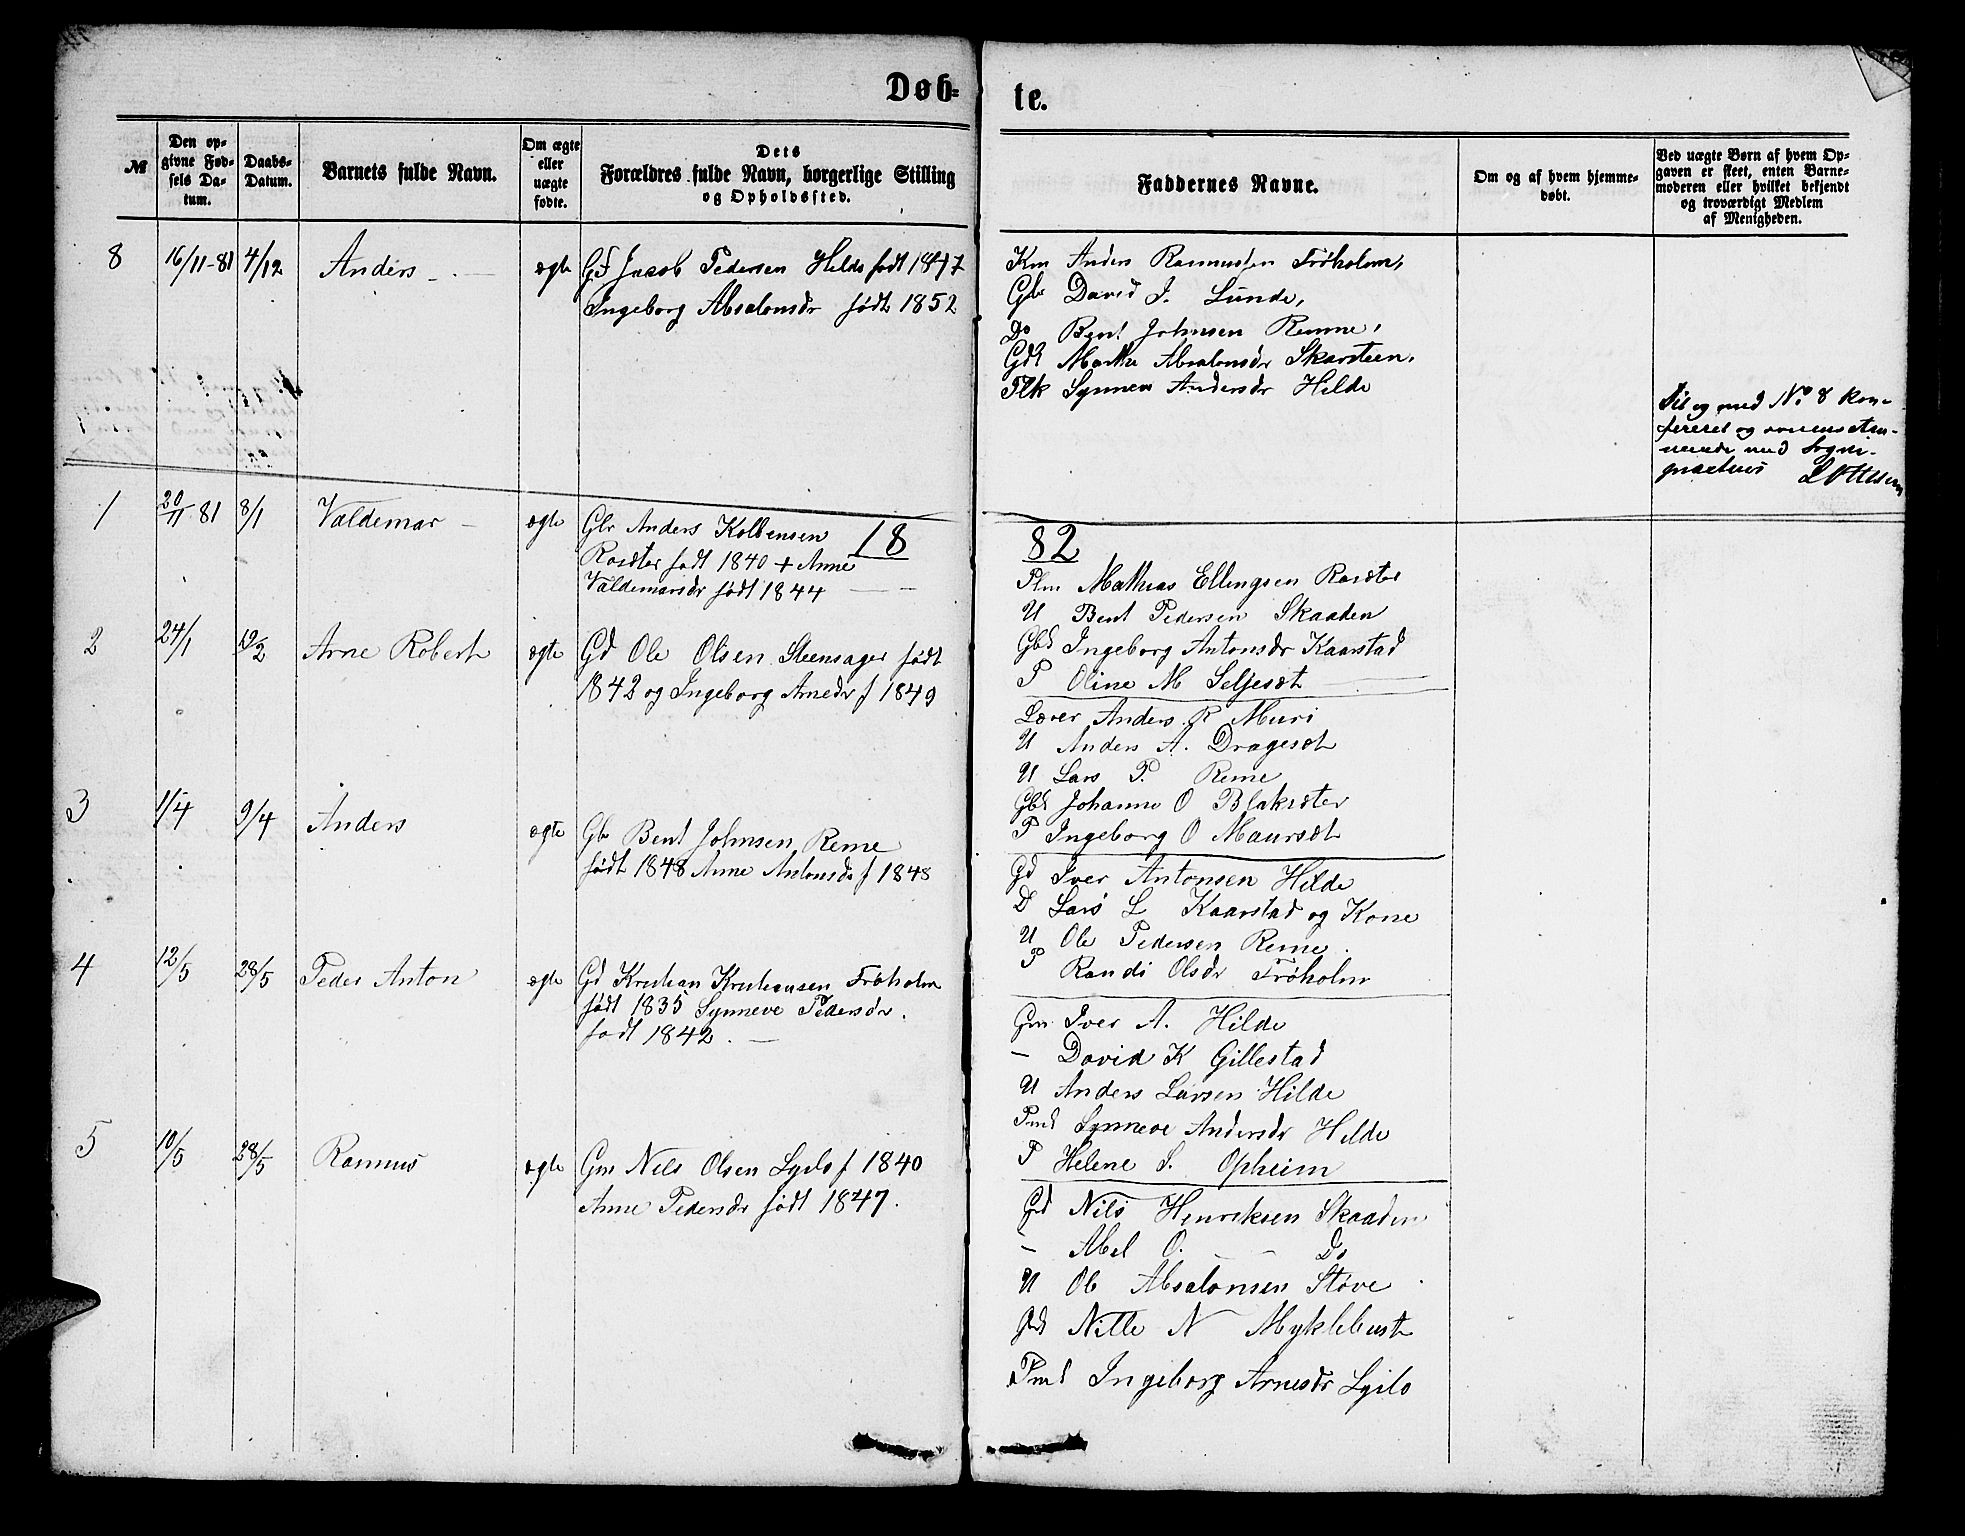 Døb-
te.
№
Den op-
givne Fød-
sels Da-
tum.
Daabs-
Datum.
Barnets fulde Navn.
Om ægte
eller
uægte
fødte.
Dets
Forældres fulde Navn, borgerlige Stilling
og Opholdssted.
Faddernes Navne.
Om og af hvem hjemme-
døbt.
Ved uægte Børn af hvem Op-
gaven er skeet, enten Barne-
moderen eller hvilket bekjendt
og troværdigt Medlem
af Menigheden.
8 16/11-81 4/12 Anders ægte Jacob Pedersen Hilde født 1847
Ingeborg Absalonsdr født 1852
Km Anders Rasmussen Frøholm,
Gbr David J. Lunde,
Do Bent Johnsen Remme,
Gdk Marthe Absalonsdr Skarsteen,
Flk Synneva Andersdr Hilde
Til og med No. 8 kon-
fereret og overensstem-
mende med Sogne-
præstens
1 20/11 81 8/1 Valdemar ægte Gbr Anders Kolbensen
Rosæter født 1840 + Anne
Valdemarsdr født 1844
18
82
Plm Mathias Ellingsen Rosæter
U Bent Pedersen Skaaden
Gbd Ingeborg Antonsdr Kaarstad
P Oline M Seljesæt
2 24/1 19/2 Arne Robert ægte Gd Ole Olsen Steensager født
1842 og Ingeborg Arnedr f 1849
Lærer Anders R Muri
U Anders A. Dragesæt
U Lars P. Reme
Gbd Johanne O Blaksæter
P Ingeborg O Maursæt
3 1/4 9/4 Anders ægte Gbr Bent Johnsen Reme
født 1848 Anne Antonsdr f 1848
Gd Iver Antonsen Hilde
D Lars L Kaarstad og Kone
U Ole Pedersen Reme.
P Randi Olsdr Frøholm
4 12/5 28/5 Peder Anton ægte Gd Kristian Kristiansen Frøholm
født 1835 Synneve Pedersdr.
født 1842.
Gm Iver A. Hilde
— David K Gillestad
U Anders Larsen Hilde
Pmd Synneve Andersdr Hilde
P Helene S. Opheim
5 10/5 28/5 Rasmus ægte Gm Nils Olsen Lyslo f 1840
Anne Pedersdr født 1847.
Gd Nils Henriksen Skaaden
— Abel O. — Do
U Ole Absalonsen Støve
Gd Nille N Myklebust
Pmd Ingeborg Arnesdr Lyslo